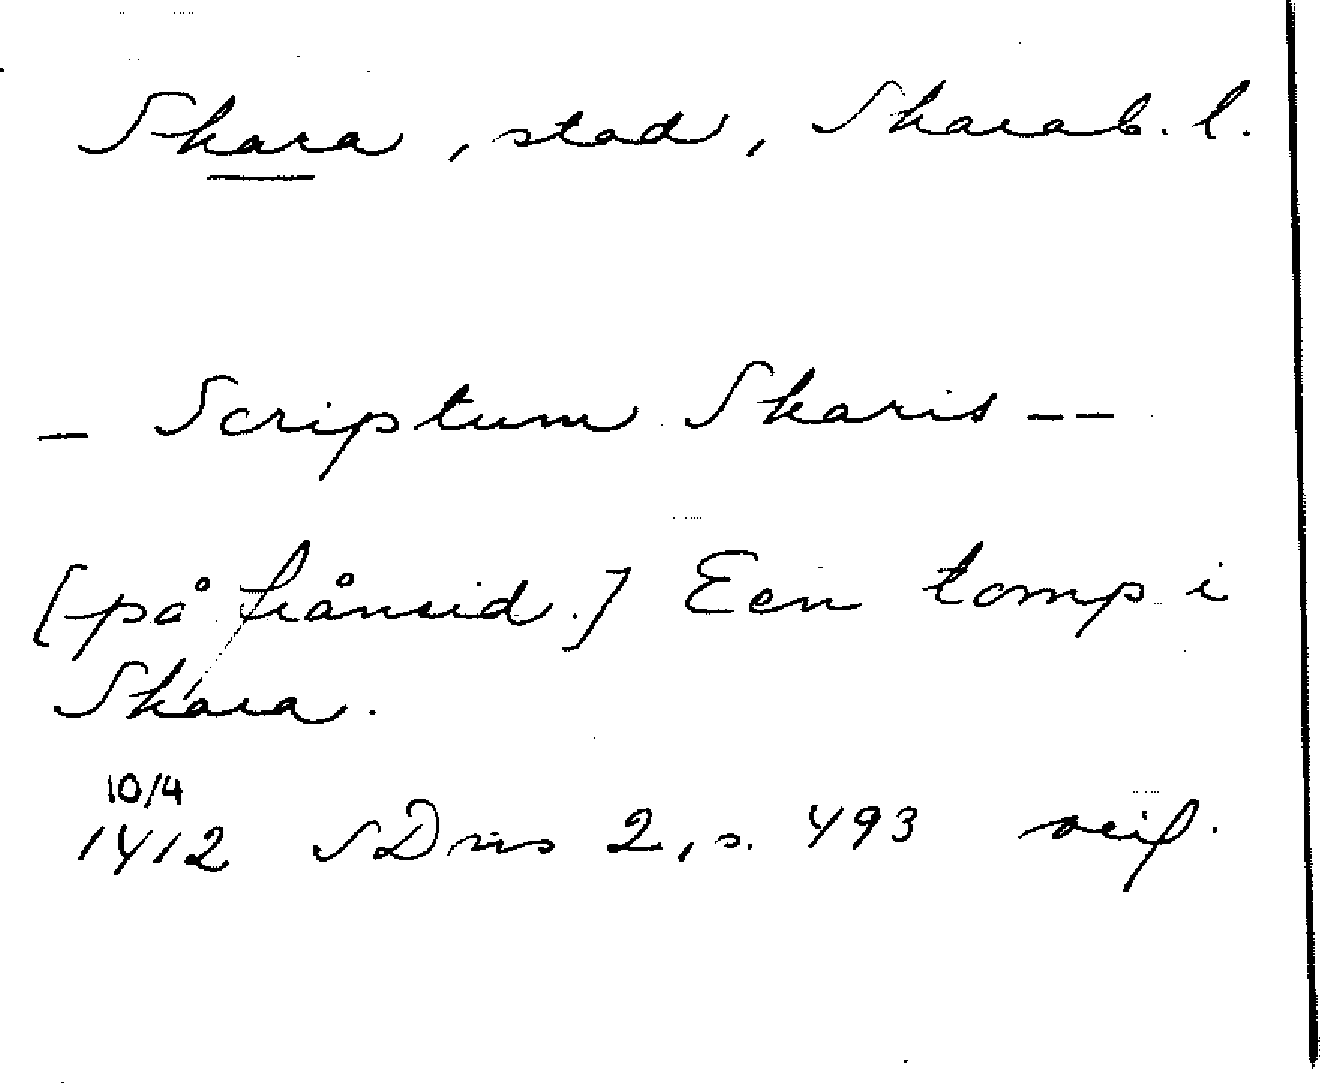 Skara, stad, Skarab. l.
- Scriptum Skaris --
[på frånsid.] Een tomp i
Skara.
10/4
1412 SDns 2, s. 493